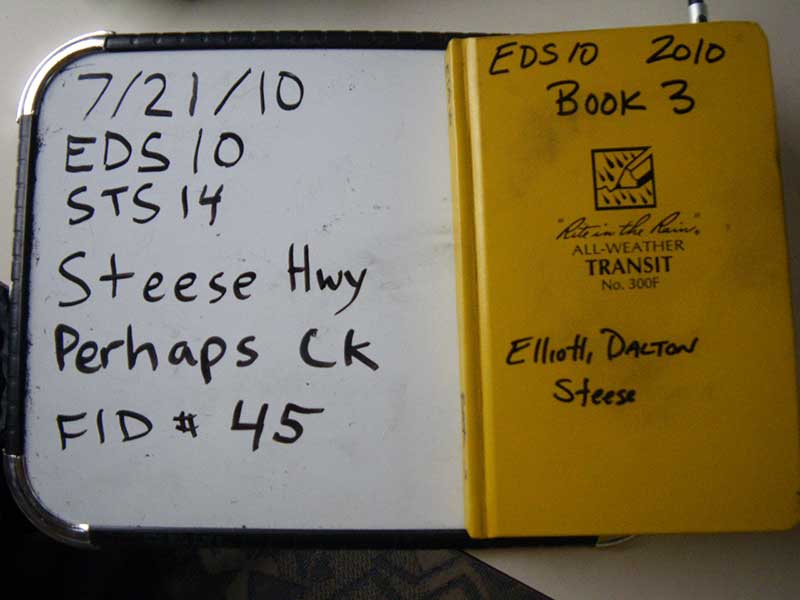 7/21/10
EDS 10
STS 14
Steese Hwy
Perhaps Ck
FID # 45
EDS 10 2010
BOOK 3
"Rite in the Rain"
ALL-WEATHER
TRANSIT
No. 300F
Elliott, DALTON
Steese